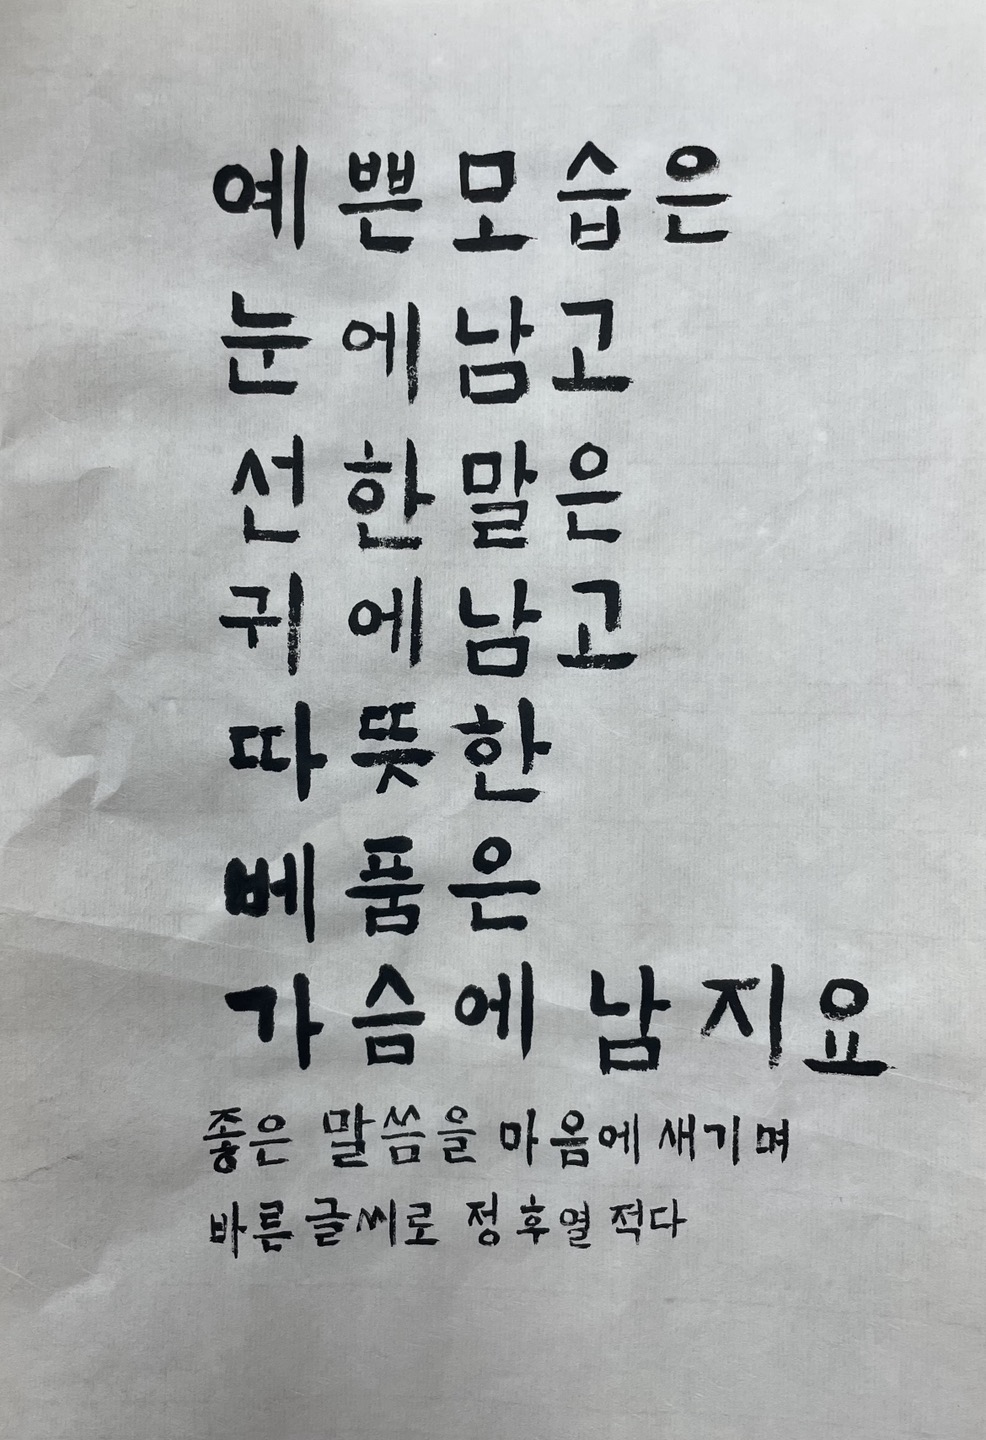 예쁜모습은
눈에남고
선한말은
귀에남고
따뜻한
베품은
가슴에 남지요
좋은 말씀을 마음에 새기며
바른글씨로 정후열 적다